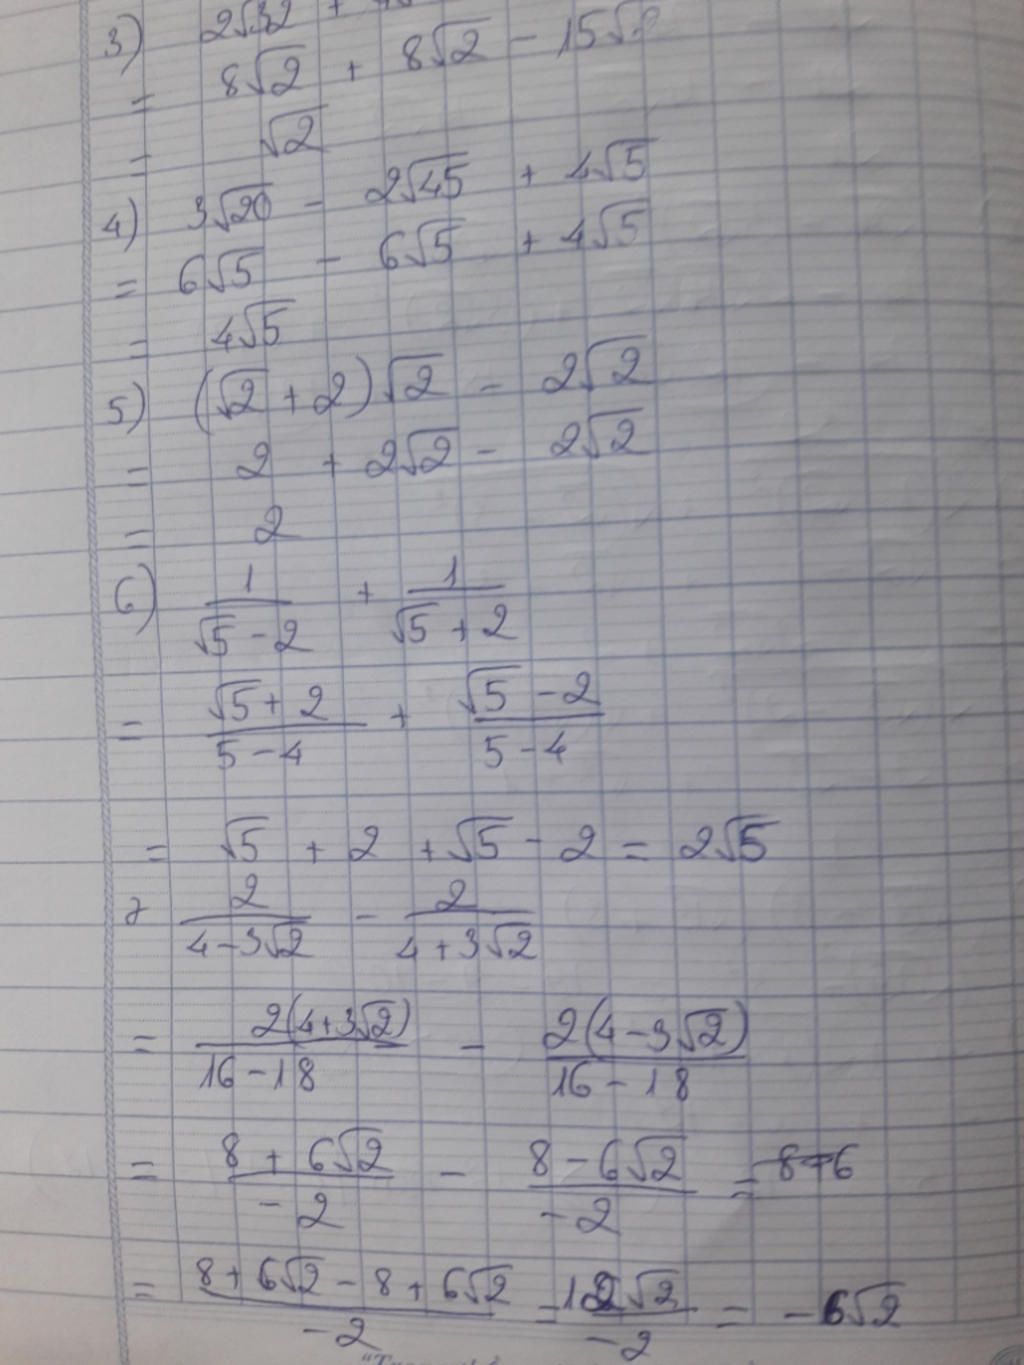 3) 2√32 +
= 8√2 + 8√2 - 15√2
= √2
4) 3√20 - 2√45 + 4√5
= 6√5 - 6√5 + 4√5
= 4√5
5) (√2 + 2)√2 - 2√2
= 2 + 2√2 - 2√2
= 2
6) 1/(√5 - 2) + 1/(√5 + 2)
= (√5 + 2)/(5 - 4) + (√5 - 2)/(5 - 4)
= √5 + 2 + √5 - 2 = 2√5
7 2/(4 - 3√2) - 2/(4 + 3√2)
= 2(4 + 3√2)/(16 - 18) - 2(4 - 3√2)/(16 - 18)
= (8 + 6√2)/(-2) - (8 - 6√2)/(-2) =
= (8 + 6√2 - 8 + 6√2)/(-2) = 12√2/(-2) = -6√2